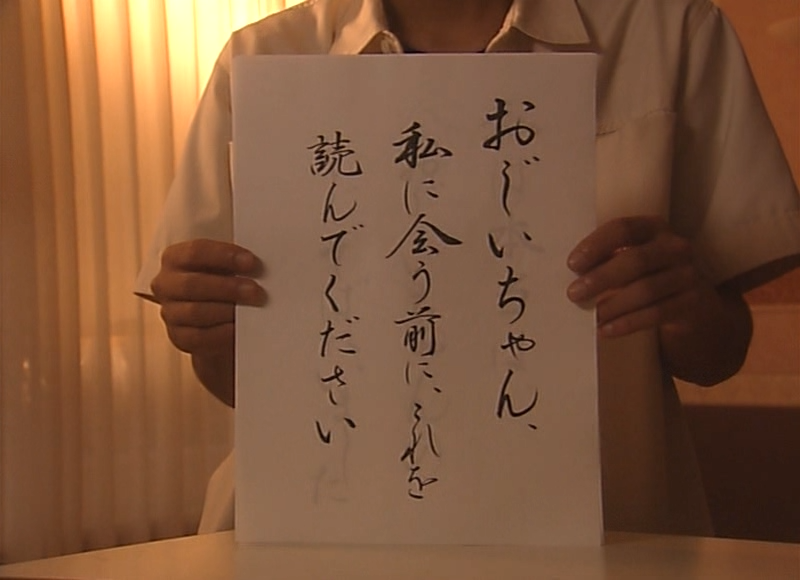 おじいちゃん、
私に会う前に、これを
読んでください